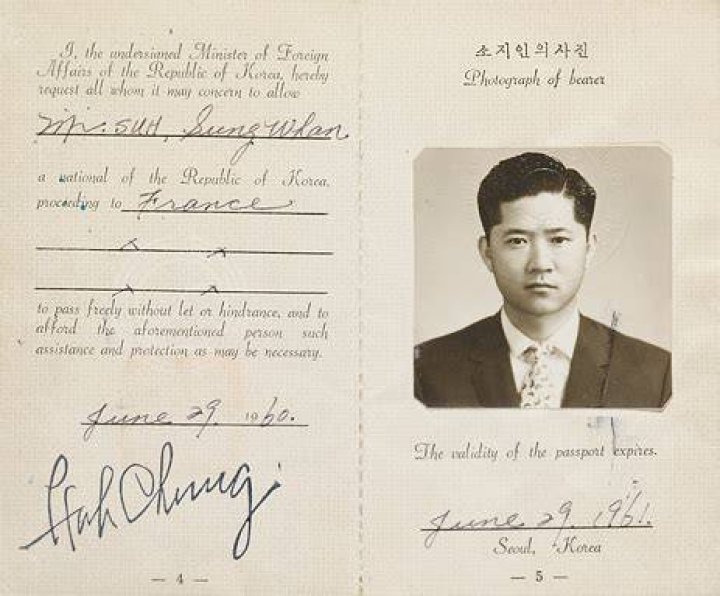 I, the undersianed Minister of Foreign
Affairs of the Republic of Korea, hereby
request all whom it may concern to allow
Mr. SUH, Sung Whan
a national of the Republic of Korea,
proceeding to France
to pass freely without let or hindrance, and to
afford the aforementioned person such
assistance and protection as may be necessary.
June 29. 1960.
Huh Chung
— 4 —
소지인의사진
Photograph of bearer
The validity of the passport expires.
June 29. 1961.
Seoul, Korea
— 5 —